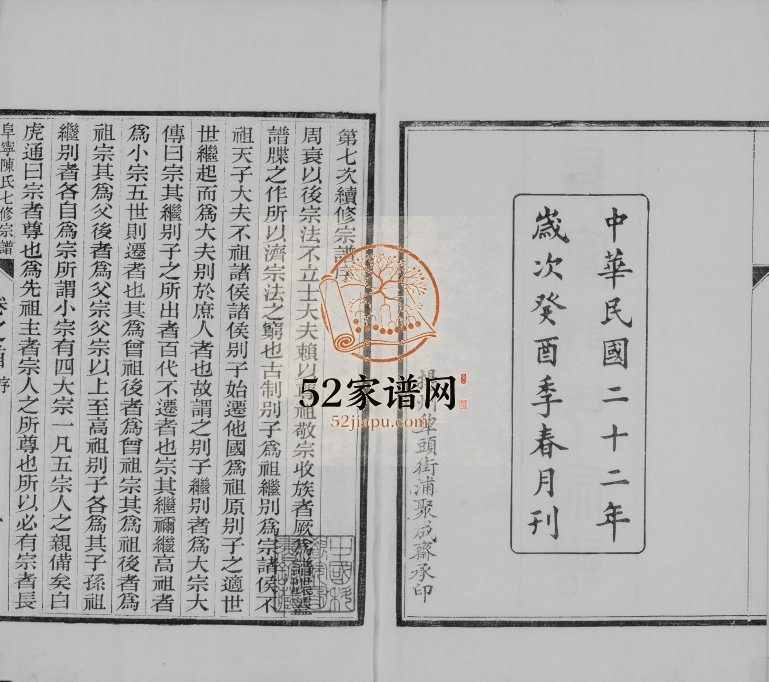 中華民國二十二年
歲次癸酉季春月刊
頭街浦聚成齋承印
第七次續修宗譜序
周衰以後宗法不立士大夫賴以祖敬宗收族者厥爲譜牒蓋
譜牒之作所以濟宗法之窮也古制别子爲祖繼别爲宗諸侯不
祖天子大夫不祖諸侯諸侯别子始遷他國爲祖原别子之適世
世繼起而爲大夫别於庶人者也故謂之别子繼别者爲大宗大
傳曰宗其繼别子之所出者百代不遷者也宗其繼禰繼高祖者
爲小宗五世則遷者也其爲曾祖後者爲曾祖宗其爲祖後者爲
祖宗其爲父後者爲父宗父宗以上至高祖别子各爲其子孫祖
繼别者各自爲宗所謂小宗有四大宗一凡五宗人之親備矣白
虎通曰宗者尊也爲先祖主者宗人之所尊也所以必有宗者長
阜寧陳氏七修宗譜 序
52家谱网
52jiapu.com